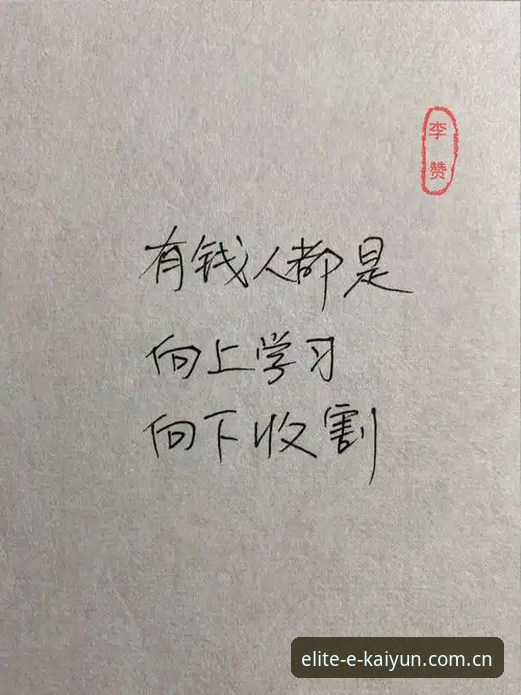 李赞
有钱人都是
向上学习
向下收割
elite-e-kaiyun.com.cn